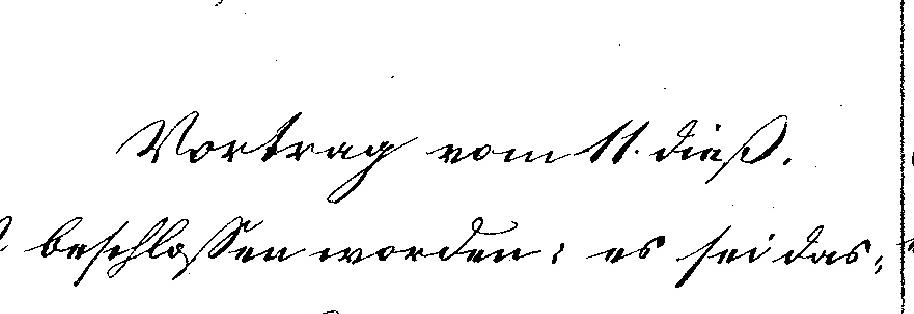 Vortrag vom 11. dieß.
beschlossen worden: es sei das-